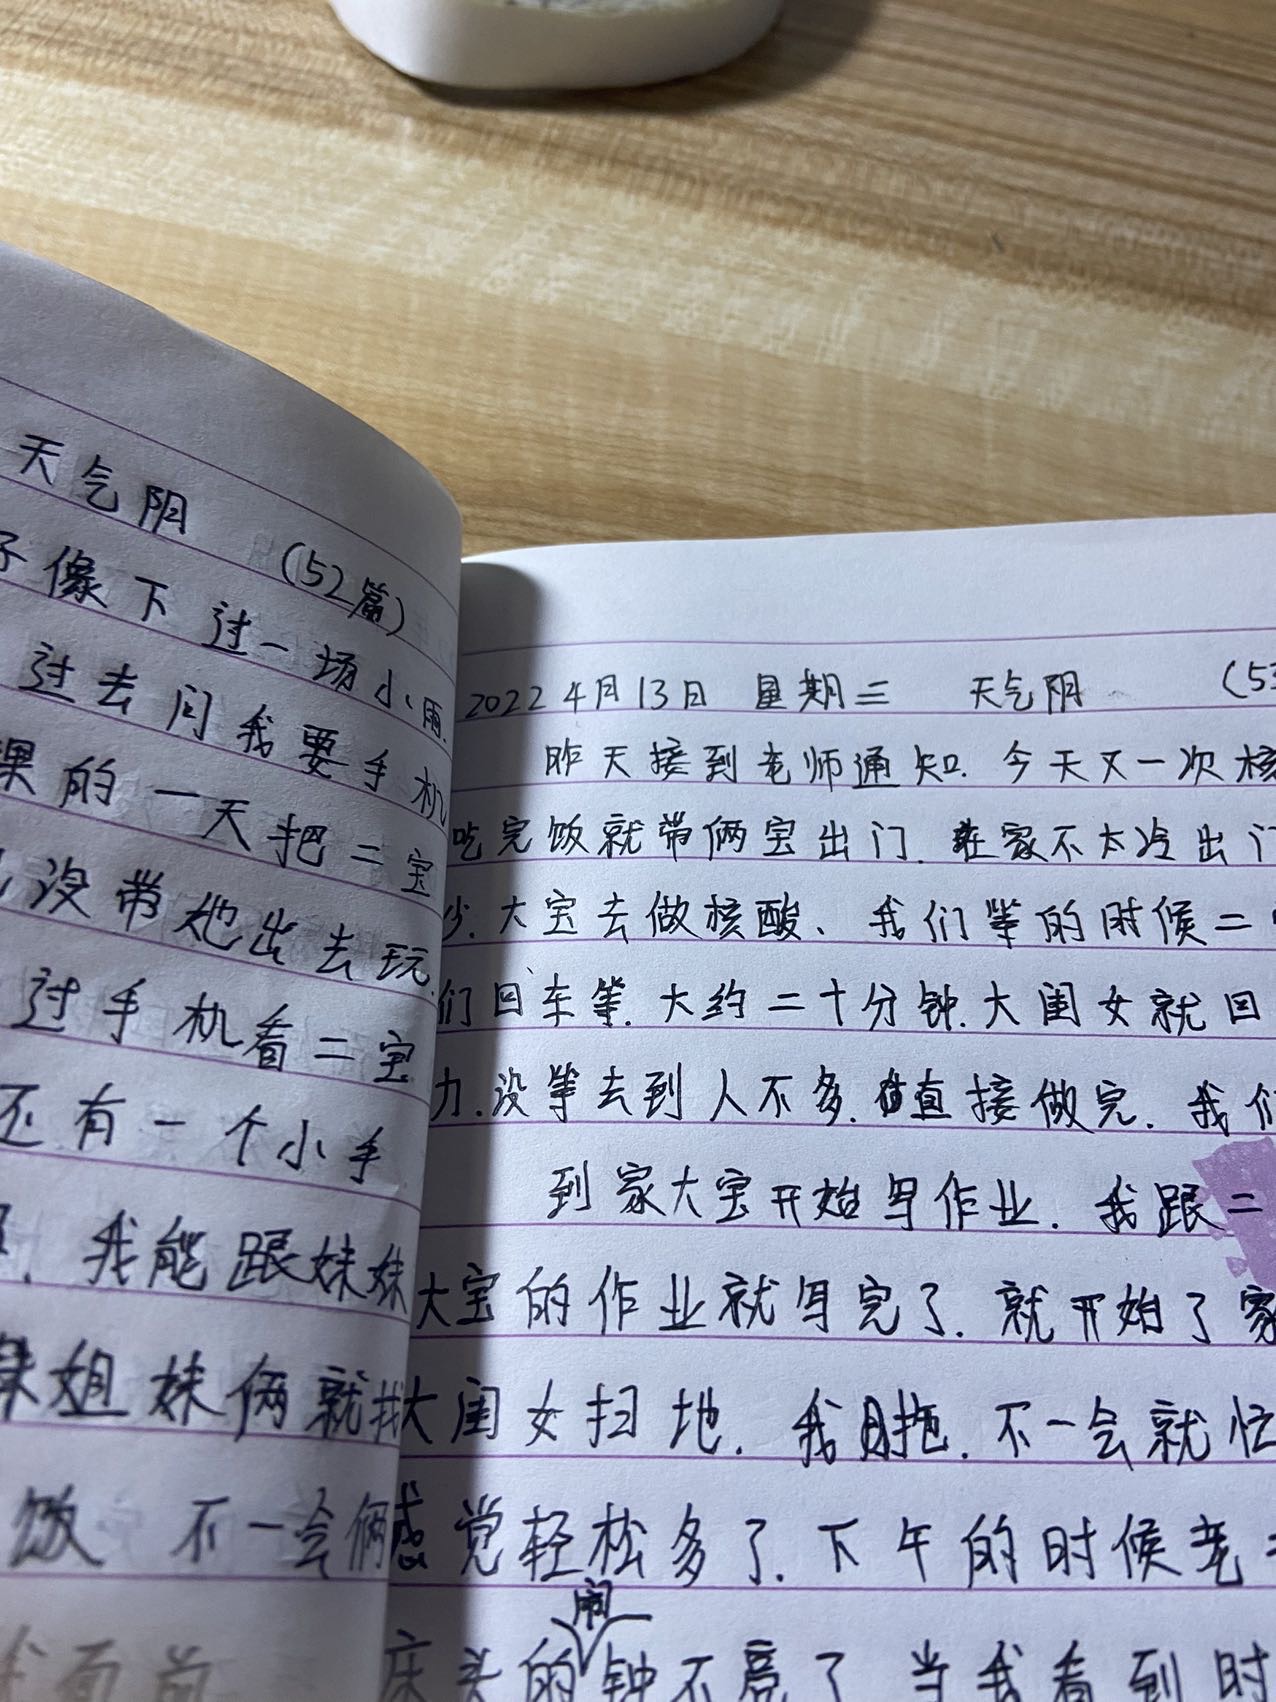 天气阴 (52篇)
子像下过一场小雨.
过去问我要手机
课的一天把二宝
没带她出去玩.
过手机看二宝
还有一个小手
. 我能跟妹妹
姐妹俩就找
饭 不一会俩
我面前
2022年4月13日 星期三 天气阴 (53
昨天接到老师通知. 今天又一次核
吃完饭就带俩宝出门. 在家不太冷出门
少. 大宝去做核酸、我们等的时候二
们回车等. 大约二十分钟. 大闺女就回
力. 没等去到人不多. 直接做完. 我们
到家大宝开始写作业. 我跟二
大宝的作业就写完了. 就开始了家
大闺女扫地. 我拖. 不一会就忙
感觉轻松多了. 下午的时候老
床头的闹钟不亮了 当我看到时